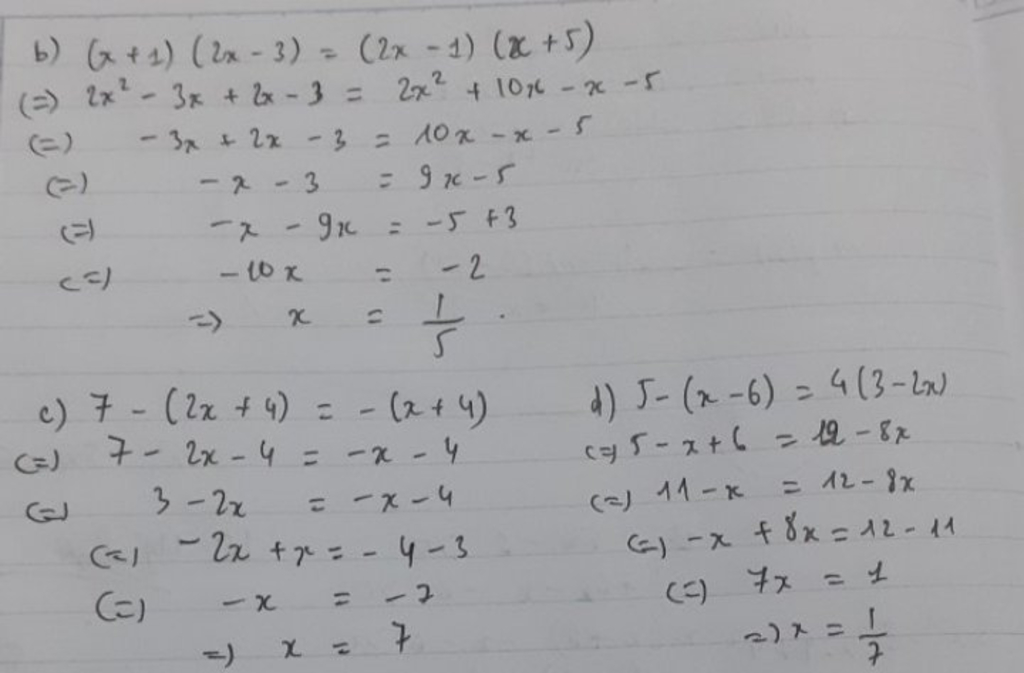 b) (x + 1) (2x - 3) = (2x - 1) (x + 5)
(=) 2x² - 3x + 2x - 3 = 2x² + 10x - x - 5
(=) - 3x + 2x - 3 = 10x - x - 5
(=) - x - 3 = 9x - 5
(=) - x - 9x = - 5 + 3
(=) - 10x = - 2
=) x = 1/5 .
c) 7 - (2x + 4) = - (x + 4)
(=) 7 - 2x - 4 = - x - 4
(=) 3 - 2x = - x - 4
(=) - 2x + x = - 4 - 3
(=) - x = - 7
=) x = 7
d) 5 - (x - 6) = 4 (3 - 2x)
(=) 5 - x + 6 = 12 - 8x
(=) 11 - x = 12 - 8x
(=) - x + 8x = 12 - 11
(=) 7x = 1
=) x = 1/7